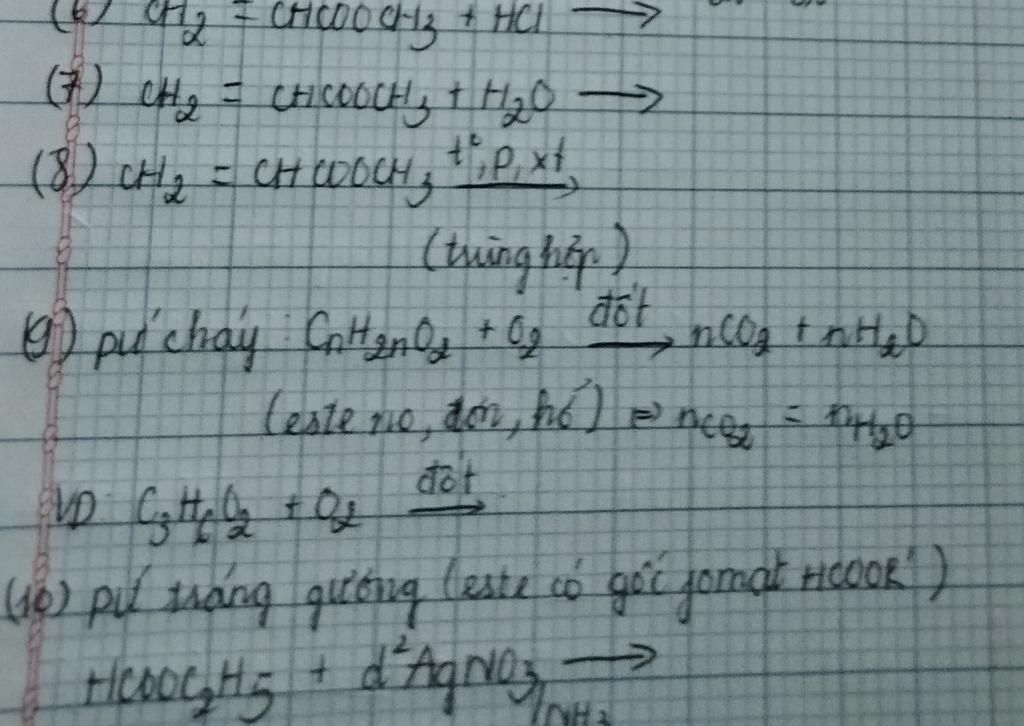 (6) CH₂ = CHCOOCH₃ + HCl →
(7) CH₂ = CHCOOCH₃ + H₂O →
(8) CH₂ = CHCOOCH₃ t°, p, xt →
(trùng hợp)
(9) pư cháy : CnH2nO₂ + O₂ đốt → nCO₂ + nH₂O
(este no, đơn, hở) ⇒ nCO₂ = nH₂O
VD: C₃H₆O₂ + O₂ đốt →
(10) pư tráng gương (este có gốc fomat HCOOR')
HCOOC₂H₅ + d² AgNO₃/NH₃ →